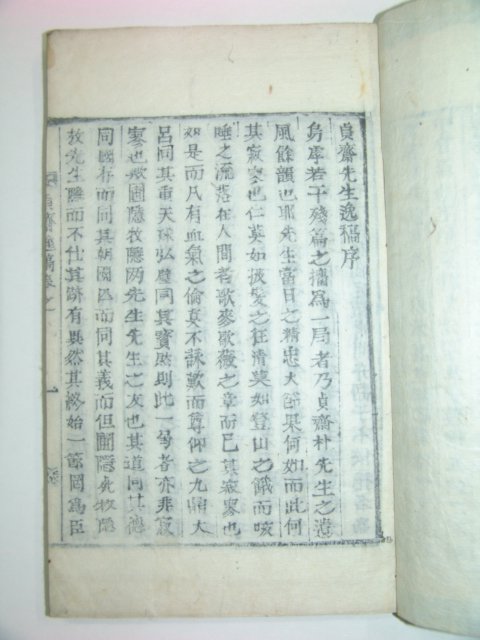 貞齋先生逸稿序
若干殘篇之爲一者乃貞齋朴先生之遺
風餘韻也耶先生當日之精忠大節果何如而此何
其寂寥也仁莫如披髮之狂淸莫如登山之餓而咳
唾之流落在人間者歌麥歌薇之章而已其寂寥也
如是而凡有血氣之倫莫不詠歎而尊仰之九鼎大
呂同其重天球弘璧同其寶然則此一者亦非寂
寥也歟圃隱牧隱兩先生先生之友也其道同其德
同國存而同其朝國亡而同其義而但圃隱死牧隱
放先生隱而不仕其跡有異然其終始一節罔爲臣
貞齋逸稿卷之一